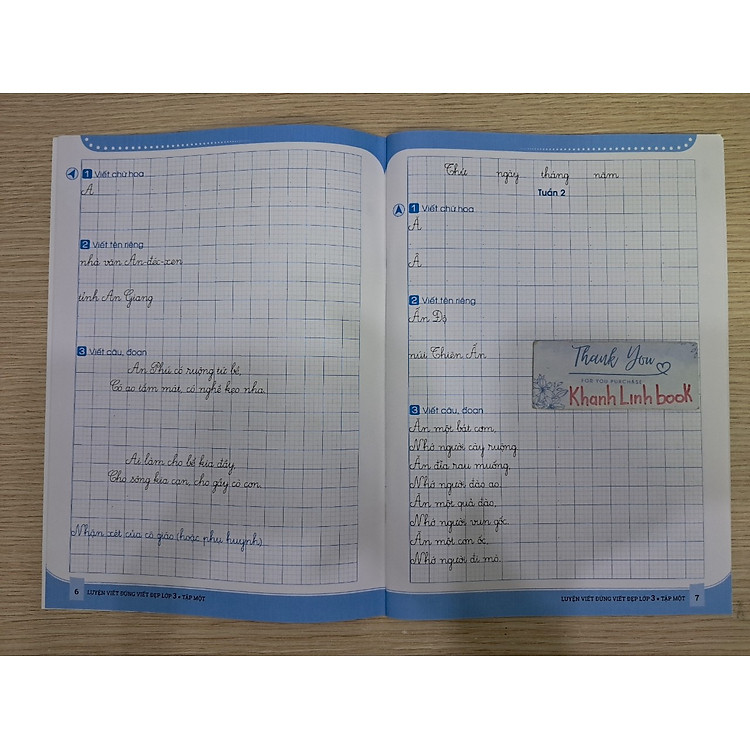 1 Viết chữ hoa
A
2 Viết tên riêng
nhà văn An-đéc-xen
tỉnh An Giang
3 Viết câu, đoạn
An Phú có ruộng tứ bề,
Có ao tắm mát, có nghề kẹo nha.
Ai làm cho bể kia đầy,
Cho sông kia cạn, cho gầy cò con.
Nhận xét của cô giáo (hoặc phụ huynh)
6 LUYỆN VIẾT ĐÚNG VIẾT ĐẸP LỚP 3 • TẬP MỘT
Thứ ngày tháng năm
Tuần 2
1 Viết chữ hoa
Â
2 Viết tên riêng
Ấn Độ
núi Thiên Ấn
3 Viết câu, đoạn
Ăn một bát cơm,
Nhớ người cày ruộng.
Ăn đĩa rau muống,
Nhớ người đào ao.
Ăn một quả đào,
Nhớ người vun gốc.
Ăn một con ốc,
Nhớ người đi mò.
Thank You
FOR YOU PURCHASE
Khanh Linh book
LUYỆN VIẾT ĐÚNG VIẾT ĐẸP LỚP 3 • TẬP MỘT 7